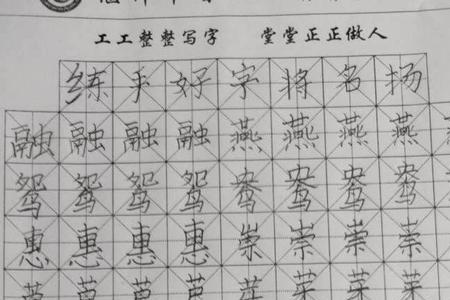 工工整整写字 堂堂正正做人
练手好字将名扬
融融融融燕燕燕燕
鸳鸳鸳鸳鸯鸯鸯鸯
惠惠惠惠崇崇崇崇